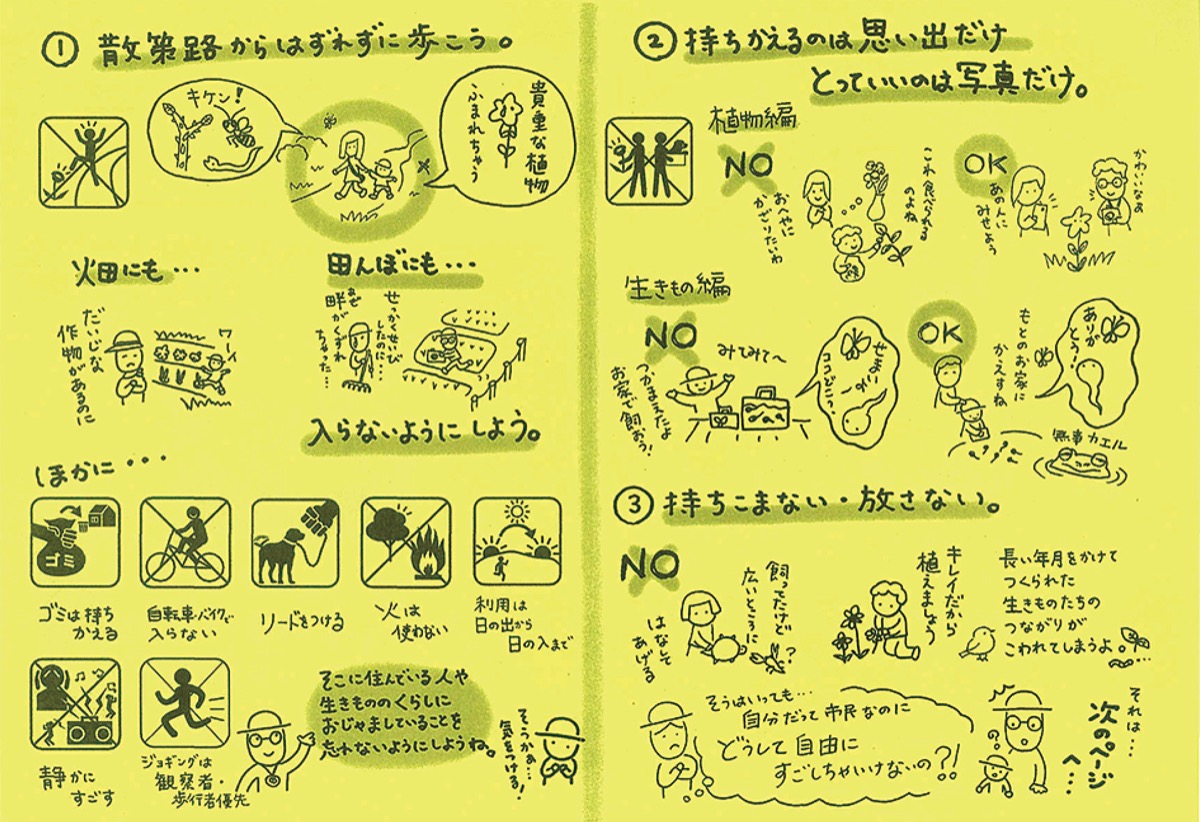 ① 散策路からはずれずに歩こう。
キケン！
貴重な植物
ふまれちゃう
畑にも・・・
田んぼにも・・・
だいじな
作物があるのに
ワーイ
せっかくせいび
したのに・・・・
畔がくずれ
ちゃった・・・
入らないようにしよう。
ほかに・・・
ゴミ
ゴミは持ち
かえる
自転車・バイクで
入らない
リードをつける
火は
使わない
利用は
日の出から
日の入まで
静かに
すごす
ジョギングは
観察者・
歩行者優先
そこに住んでいる人や
生きもののくらしに
おじゃましていることを
忘れないようにしようね。
そっかぁ・・・
気をつける！
② 持ちかえるのは思い出だけ
とっていいのは写真だけ。
植物編
NO
おへやに
かざりたいわ
これ食べられる
のよね
OK
あの人に
みせよう
かわいいなぁ
生きもの編
NO
みてみて〜
つかまえたよ
お家で飼おう！
せまい
ココどこっ？
OK
もとのお家に
かえすね
ありが
とう！
無事カエル
③ 持ちこまない・放さない。
NO
飼ってたけど
広いところに
はなして
あげる
？
キレイだから
植えましょう
長い年月をかけて
つくられた
生きものたちの
つながりが
こわれてしまうよ。
そうはいっても・・・
自分だって市民なのに
どうして自由に
すごしちゃいけないの？！
？
それは・・・
次のページ
へ・・・